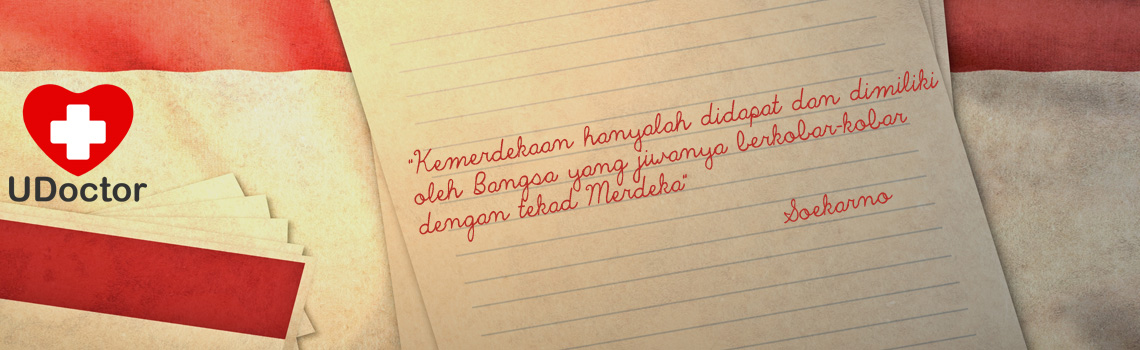 UDoctor
"Kemerdekaan hanyalah didapat dan dimiliki
oleh Bangsa yang jiwanya berkobar-kobar
dengan tekad Merdeka"
Soekarno